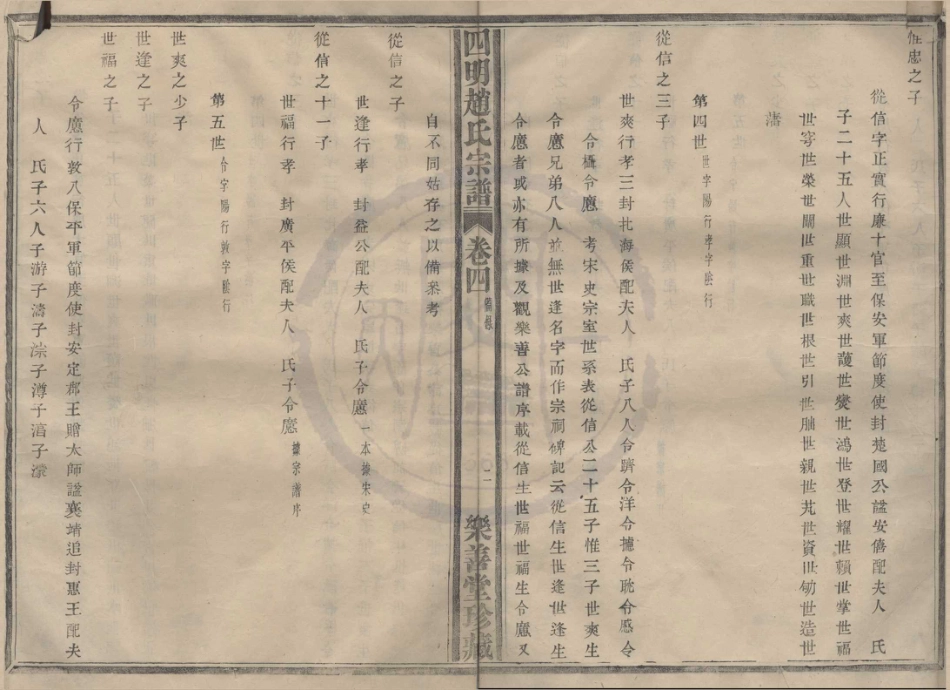 惟忠之子
從信字正實行廉十官至保安軍節度使封楚國公諡安僖配夫人　氏
子二十五人世顯世淵世爽世護世爕世鴻世登世耀世賴世掌世福
世雱世榮世關世重世職世根世引世世親世芃世資世世造世
藩
第四世世字陽行孝字陰行
從信之三子
世爽行孝三封北海侯配夫人　氏子八人令躋令洋令攄令耽令感令
令櫄令懬　考宋史宗室世系表從信公二十五子惟三子世爽生
令懬兄弟八人並無世逢名字而作宗祠碑記云從信生世逢世逢生
令懬者或亦有所據及觀樂善公譜序載從信生世福世福生令懬又
四明趙氏宗譜　卷四　二　樂善堂珍藏
自不同姑存之以備叅考
從信之子
世逢行孝　封益公配夫人　氏子令懬一本據宋史
從信之十一子
世福行孝　封廣平侯配夫人　氏子令懬據宗譜序
第五世令字陽行敦字陰行
世爽之少子
世逢之子
世福之子
令懬行敦八保平軍節度使封安定郡王贈太師諡襄靖追封惠王配夫
人　氏子六人子游子濤子淙子潯子子濛